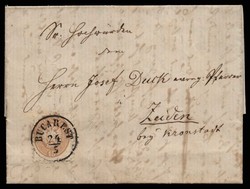 Sr. Hochwürden
dem
Herrn Josef Duck evang. Pfarrer
Zeiden
bey Kronstadt
BUCAREST
24